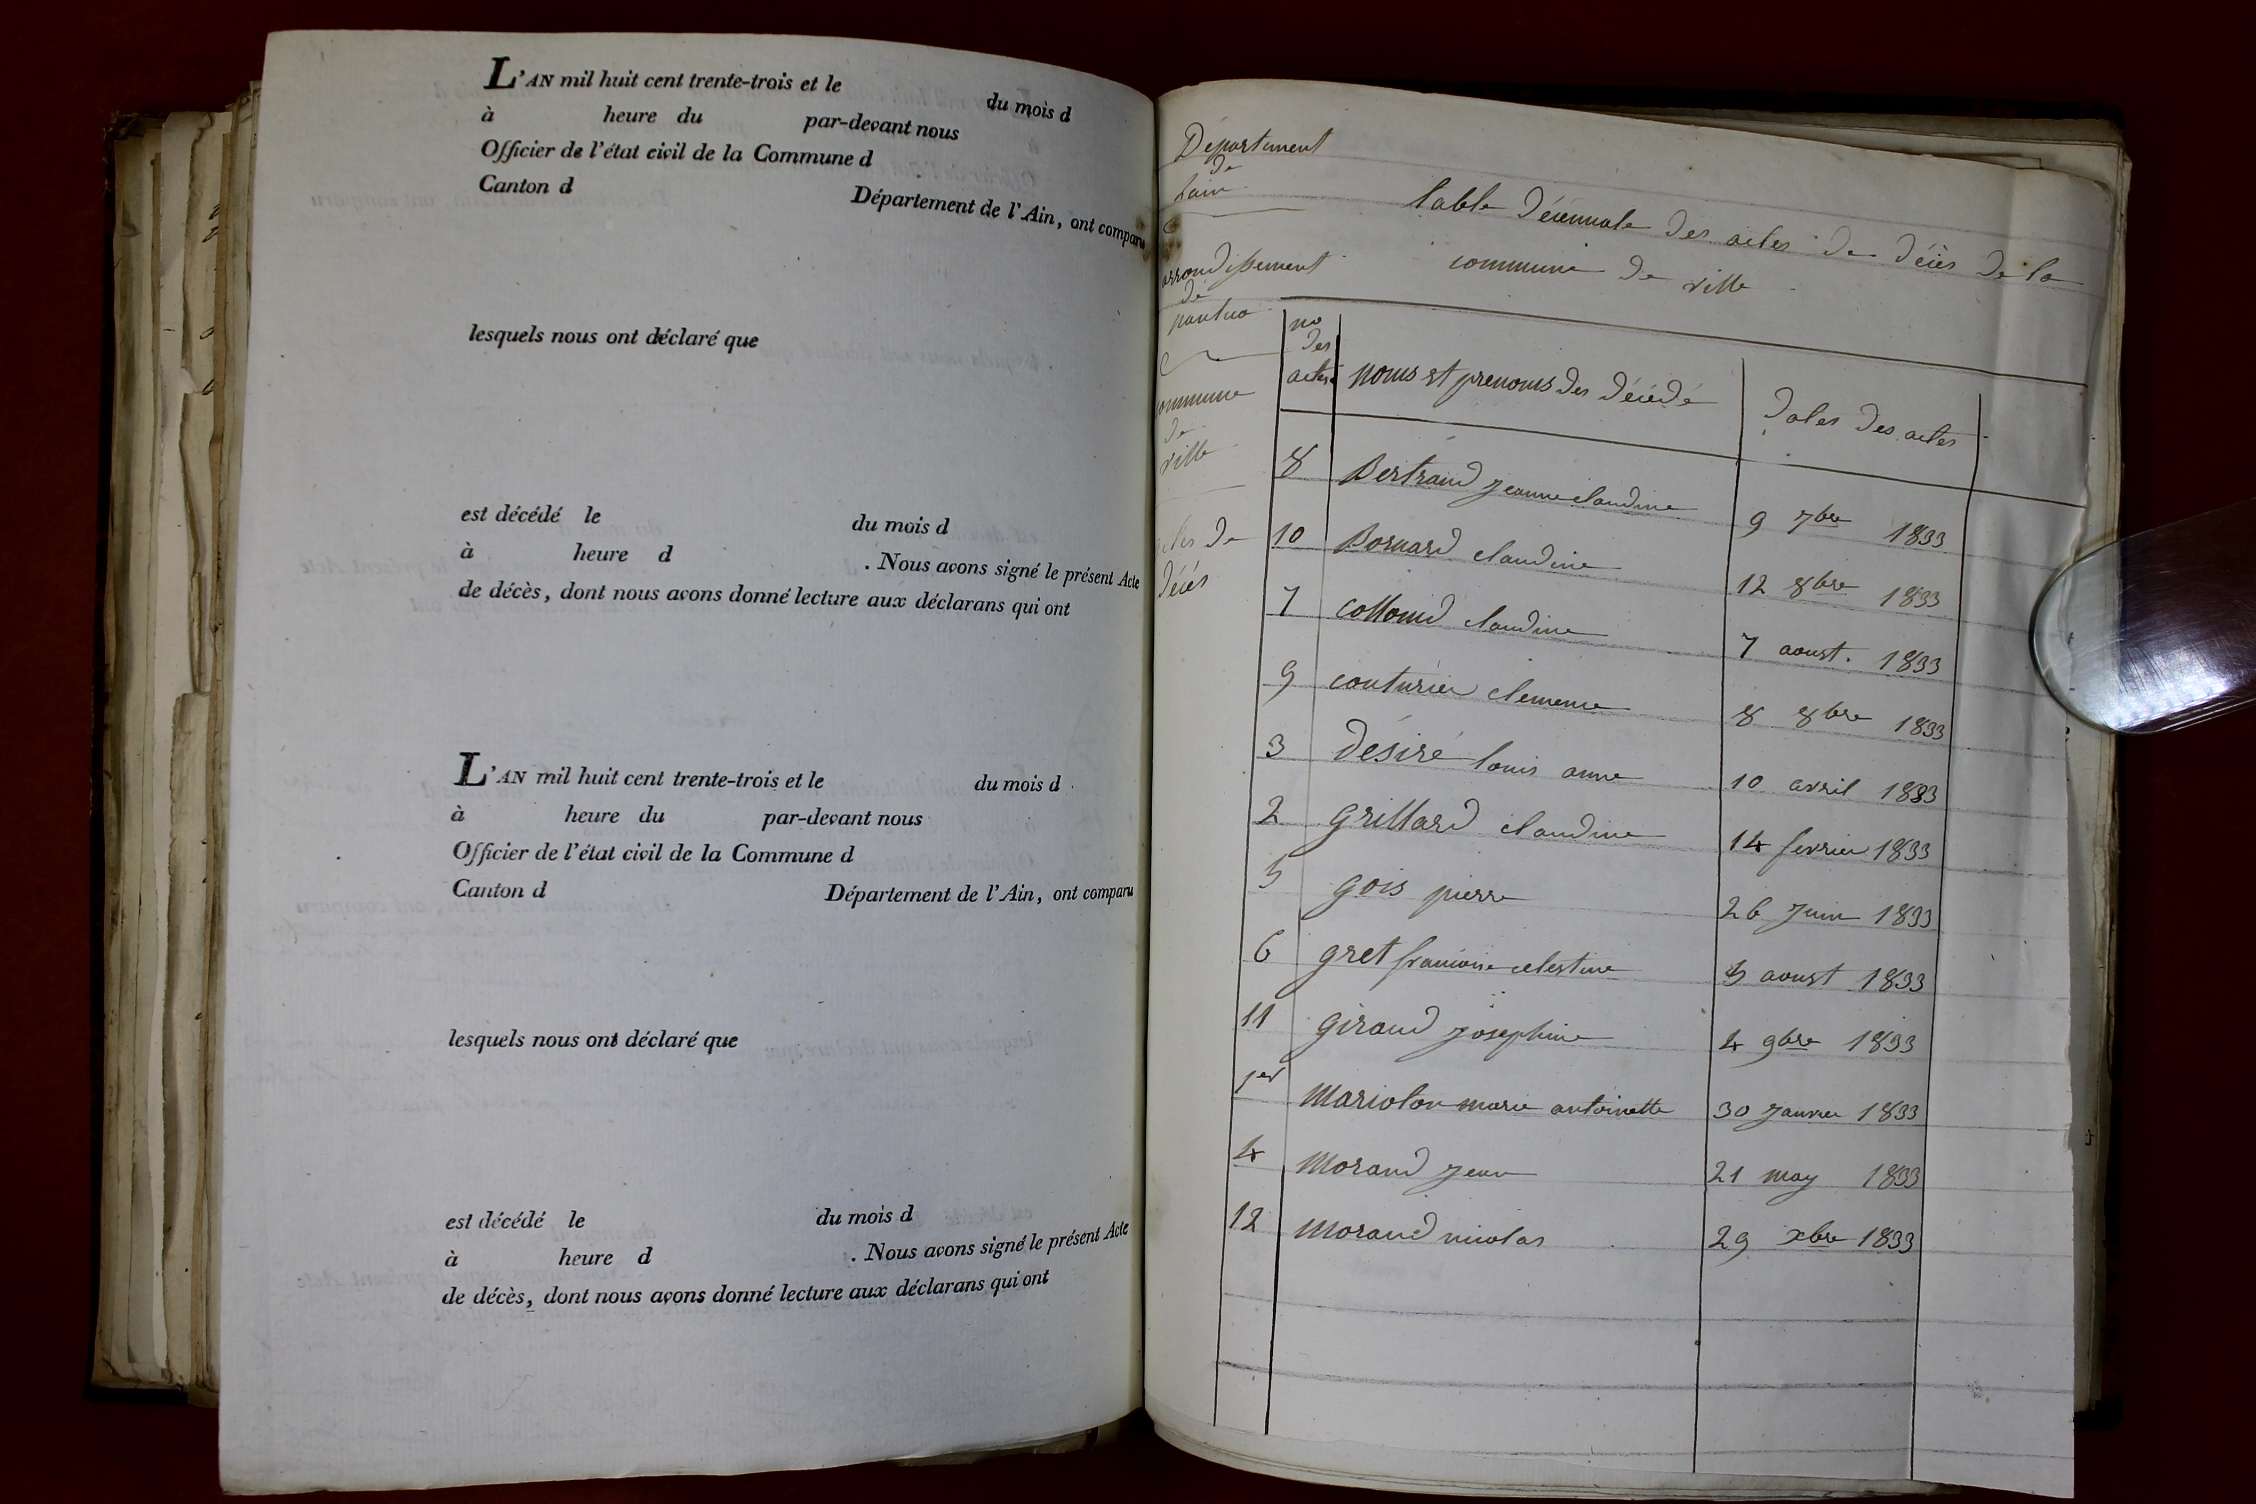 L'AN mil huit cent trente-trois et le du mois d
à heure du par-devant nous
Officier de l'état civil de la Commune d
Canton d Département de l'Ain, ont comparu
lesquels nous ont déclaré que
est décédé le du mois d
à heure d . Nous avons signé le présent Acte
de décès, dont nous avons donné lecture aux déclarans qui ont
L'AN mil huit cent trente-trois et le du mois d
à heure du par-devant nous
Officier de l'état civil de la Commune d
Canton d Département de l'Ain, ont comparu
lesquels nous ont déclaré que
est décédé le du mois d
à heure d . Nous avons signé le présent Acte
de décès, dont nous avons donné lecture aux déclarans qui ont
Département
de
Lain
arrondissement
de
nantua
commune
de
ville
actes de
décés
table décennale des actes de décès de la
commune de ville
no
des
actes
noms et prenoms des décédé
dates des actes
8 Bertrand jeanne claudine 9 7bre 1833
10 Bornard claudine 12 8bre 1833
7 collomd claudine 7 aoust. 1833
9 couturier clemence 8 8bre 1833
3 désiré louis anne 10 avril 1833
2 grillard claudine 14 fevrier 1833
5 gois pierre 26 juin 1833
6 gret francoise celestine 5 aoust 1833
11 giraud josephine 4 9bre 1833
1er mariolon marie antoinette 30 janvier 1833
4 morand jean 21 may 1833
12 morand nicolas 29 xbre 1833